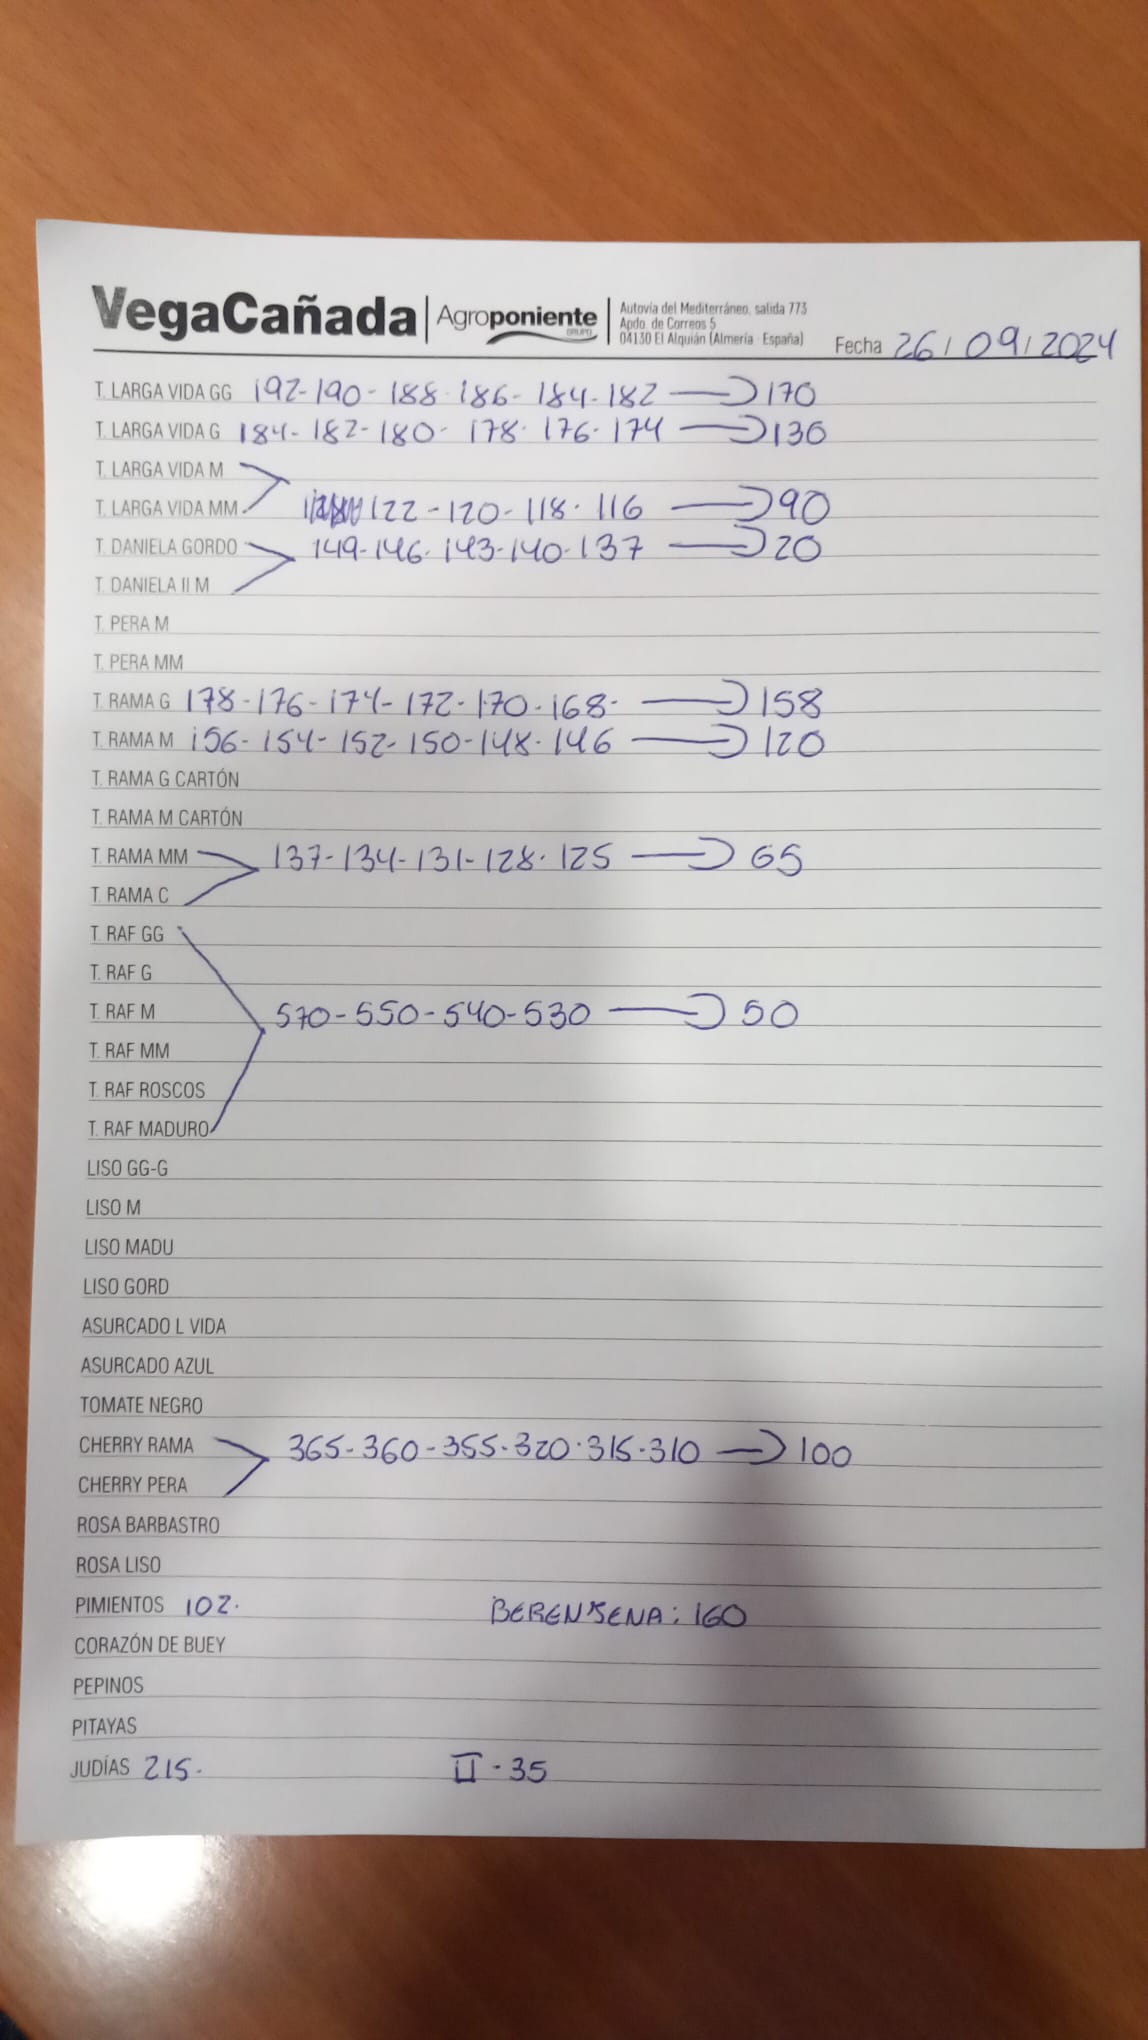 VegaCañada | Agroponiente GRUPO | Autovía del Mediterráneo, salida 773
Apdo. de Correos 5
04130 El Alquián (Almería - España)
Fecha 26/09/2024
T. LARGA VIDA GG 192-190-188-186-184-182 → 170
T. LARGA VIDA G 184-182-180-178-176-174 → 130
T. LARGA VIDA M
T. LARGA VIDA MM 122-120-118-116 → 90
T. DANIELA GORDO 149-146-143-140-137 → 20
T. DANIELA II M
T. PERA M
T. PERA MM
T. RAMA G 178-176-174-172-170-168- → 158
T. RAMA M 156-154-152-150-148-146 → 120
T. RAMA G CARTÓN
T. RAMA M CARTÓN
T. RAMA MM 137-134-131-128-125 → 65
T. RAMA C
T. RAF GG
T. RAF G
T. RAF M 570-550-540-530 → 50
T. RAF MM
T. RAF ROSCOS
T. RAF MADURO
LISO GG-G
LISO M
LISO MADU
LISO GORD
ASURCADO L VIDA
ASURCADO AZUL
TOMATE NEGRO
CHERRY RAMA 365-360-355-320-315-310 → 100
CHERRY PERA
ROSA BARBASTRO
ROSA LISO
PIMIENTOS 102. BERENJENA: 160
CORAZÓN DE BUEY
PEPINOS
PITAYAS
JUDÍAS 215. II - 35